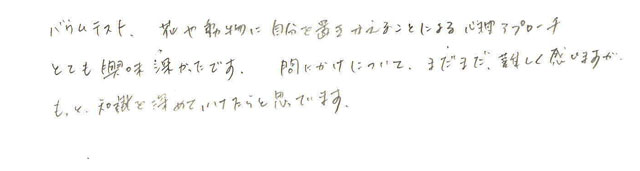 バウムテスト、花や動物に自分を置きかえることによる心理アプローチ
とても興味深かったです。 問いかけについて、まだまだ、難しく感じますが、
もっと、知識を深めていけたらと思います。